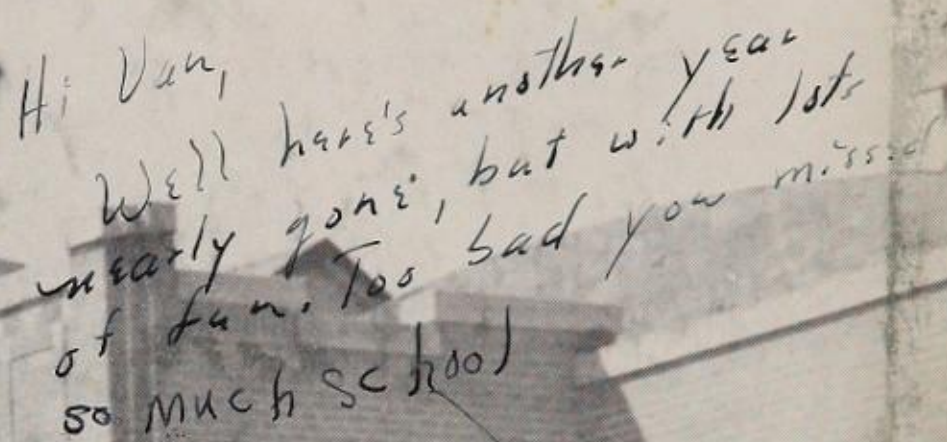 Hi Van,
Well here's another year
nearly gone, but with lots
of fun. Too bad you missed
so much school